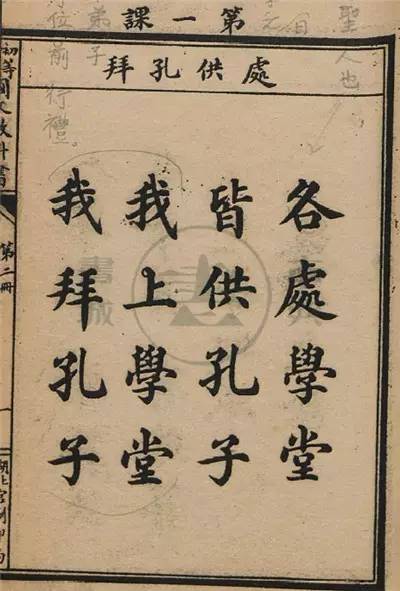 第一課
處供孔拜
聖人也
弟子
位前行禮。
各處學堂
皆供孔子
我上學堂
我拜孔子
初等國文教科書
第二冊
一